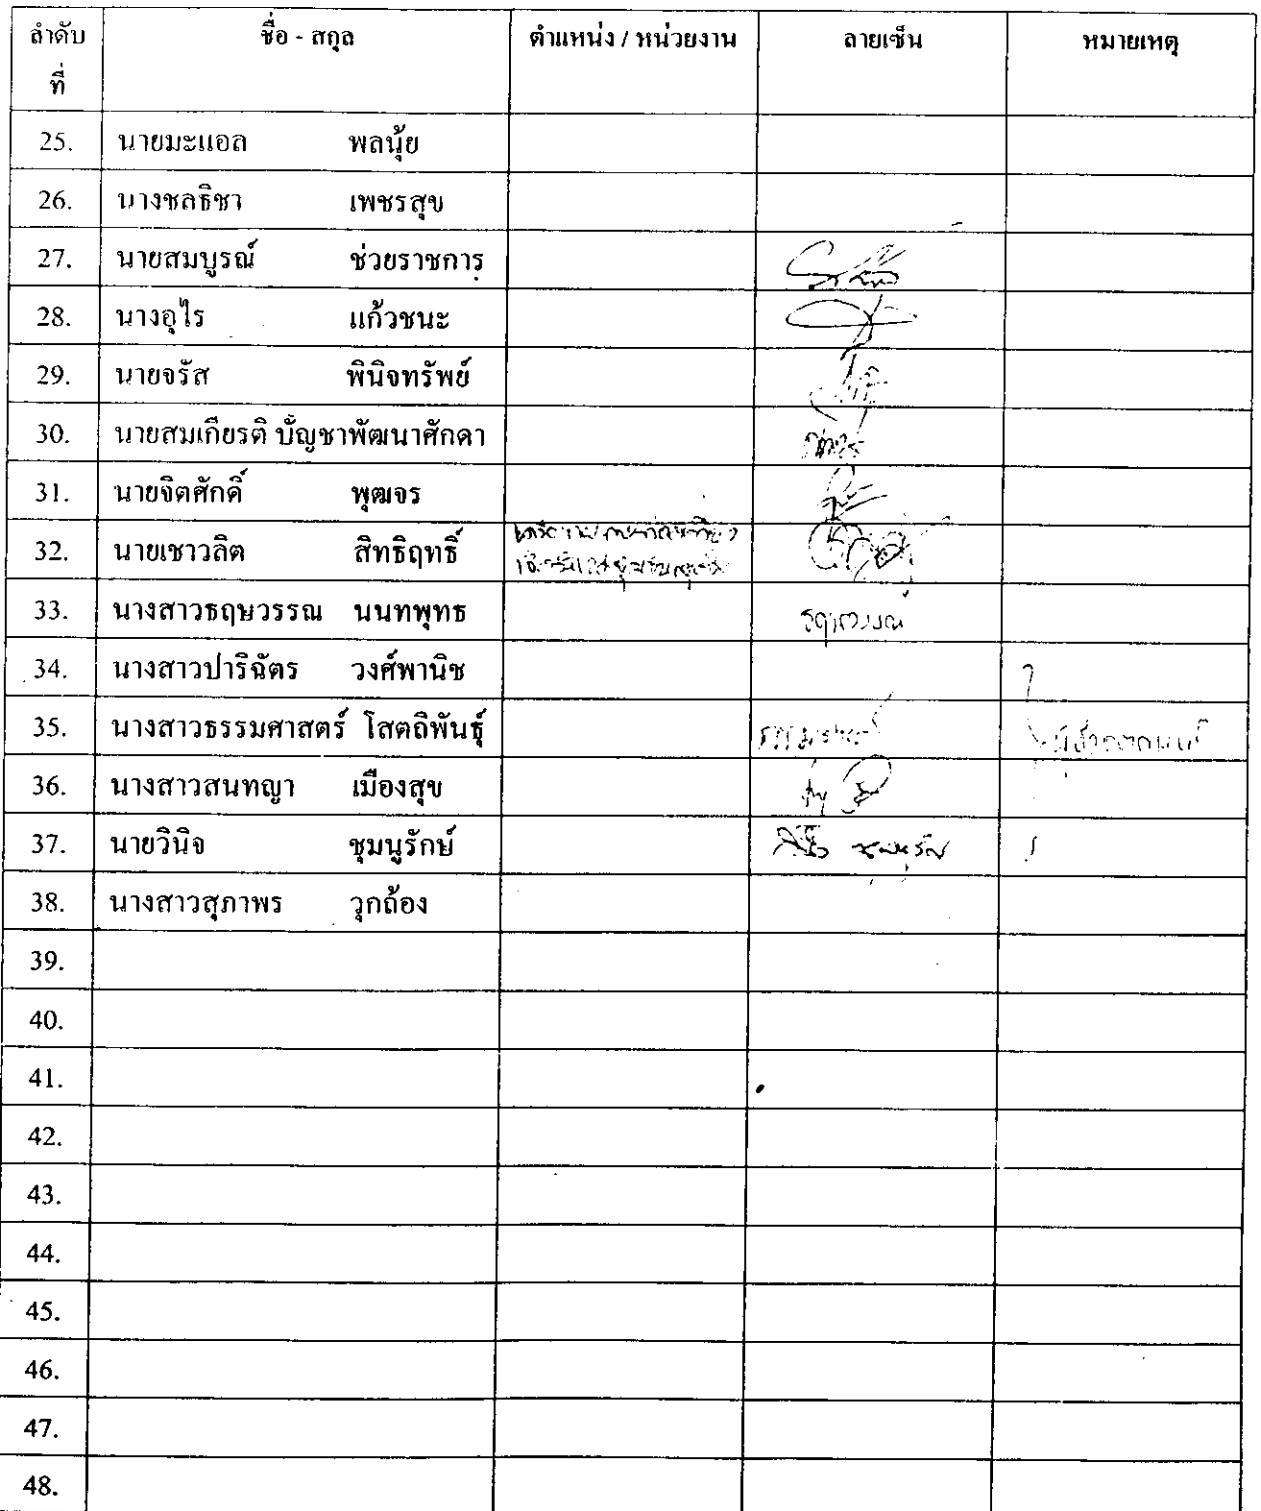 ลำดับ ชื่อ - สกุล ตำแหน่ง / หน่วยงาน ลายเซ็น หมายเหตุ
ที่
25. นายมะแอล พลนุ้ย
26. นางชลธิชา เพชรสุข
27. นายสมบูรณ์ ช่วยราชการ
28. นางอุไร แก้วชนะ
29. นายจรัส พินิจทรัพย์
30. นายสมเกียรติ บัญชาพัฒนาศักดา
31. นายจิตศักดิ์ พุฒจร
32. นายเชาวลิต สิทธิฤทธิ์
33. นางสาวธฤษวรรณ นนทพุทธ
34. นางสาวปาริฉัตร วงศ์พานิช
35. นางสาวธรรมศาสตร์ โสตถิพันธุ์
36. นางสาวสนทญา เมืองสุข
37. นายวินิจ ชุมนูรักษ์
38. นางสาวสุภาพร วุกถ้อง
39.
40.
41.
42.
43.
44.
45.
46.
47.
48.